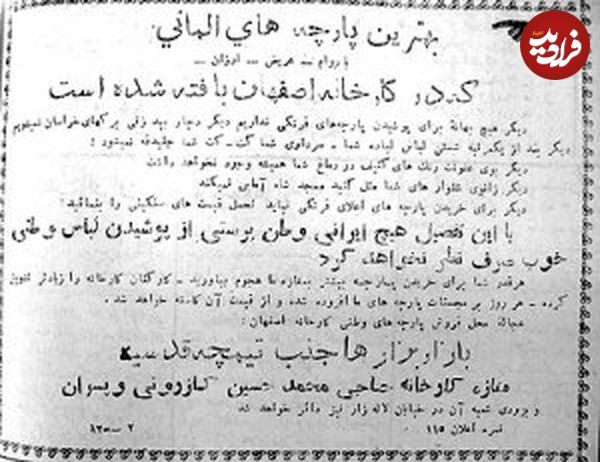 فرادید
اخبار
بهترین پارچه های المانی
با دوام - عریض - ارزان
که در کارخانه اصفهان بافته شده است
دیگر هیچ بهانهٔ برای پوشیدن پارچه‌های فرنگی نداریم دیگر دچار بید زنی برکهای خراسان نمیشویم
دیگر بعد از یکمرتبه شستن لباس لباده شما - سرداری شما کت - کت شما جلیقه نمیشود ؛
دیگر بوی عفونت رنگ های کثیف در دماغ شما همیشه وجود نخواهد داشت
دیگر زانوی شلوار های شما مثل گنبد مسجد شاه آماس نمیکند
دیگر برای خریدن پارچه های اعلای فرنگی نباید تحمل قیمت های سنگینی را بنمائید :
با این تفصیل هیچ ایرانی وطن پرستی از پوشیدن لباس وطنی
خوب صرف نظر نخواهد کرد
هرقدر شما برای خریدن پارچه بیشتر بمغازه ما هجوم بیاورید - کارکنان کارخانه را زیادتر تشویق
کرده - هر روز بر محسنات پارچه های ما افزوده شده و از قیمت آن کاسته خواهد شد .
عجالة محل فروش پارچه‌های وطنی کارخانه اصفهان :
بازار بزازها جنب تیمچه قدسیه
مغازه کارخانه حاجی محمد حسین کازرونی و پسران
و بزودی شعبه آن در خیابان لاله زار نیز دائر خواهد شد
نمره اعلان ۱۱۵